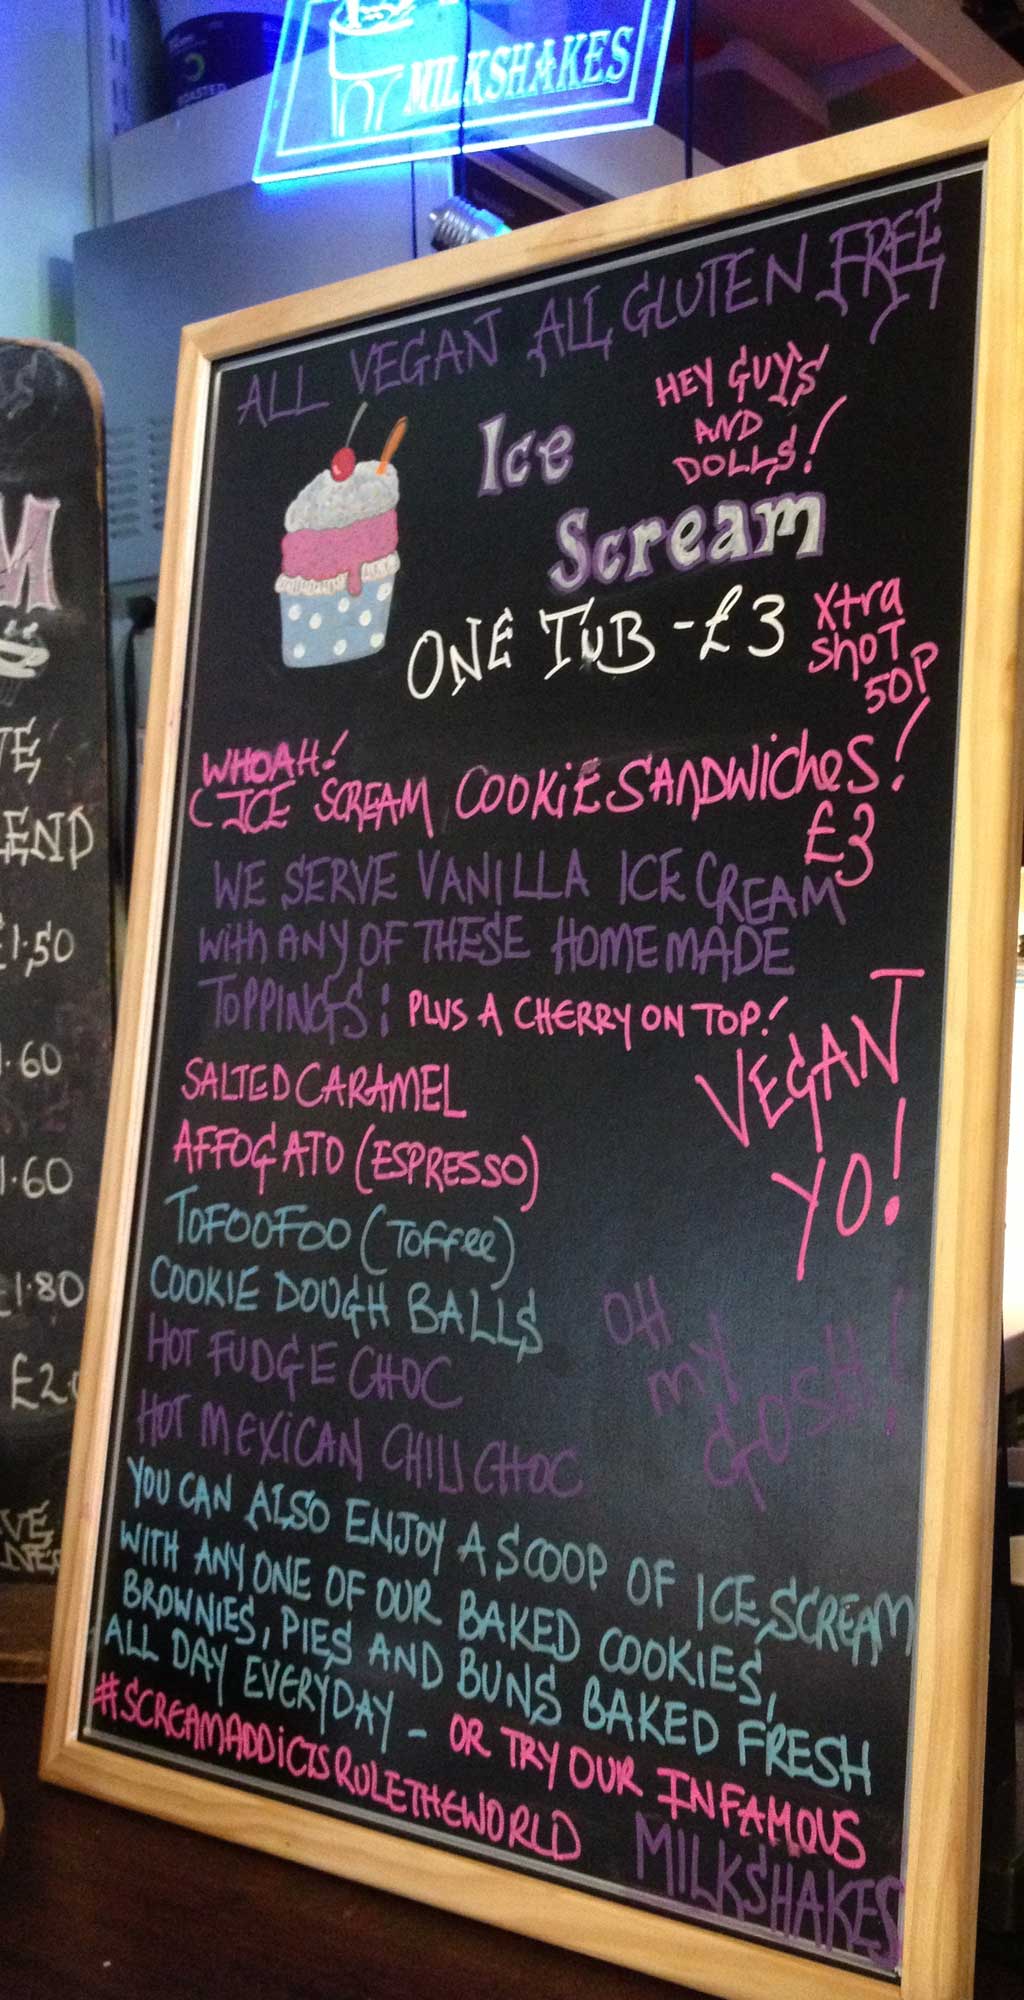 MILKSHAKES
ROASTED
ALL VEGAN ALL GLUTEN FREE
HEY GUYS
AND
DOLLS!
Ice
Scream
ONE TUB - £3
Xtra
shot
50P
WHOAH!
ICE SCREAM COOKIE SANDWICHES!
£3
WE SERVE VANILLA ICE CREAM
with ANY OF THESE HOMEMADE
TOPPINGS: PLUS A CHERRY ON TOP!
SALTED CARAMEL
AFFOGATO (ESPRESSO)
TOFOOFOO (TOFFEE)
COOKIE DOUGH BALLS
HOT FUDGE CHOC
HOT MEXICAN CHILI CHOC
VEGAN
YO!
OH
MY
GOSH!
YOU CAN ALSO ENJOY A SCOOP OF ICE SCREAM
WITH ANY ONE OF OUR BAKED COOKIES,
BROWNIES, PIES AND BUNS BAKED FRESH
ALL DAY EVERYDAY - OR TRY OUR INFAMOUS
#SCREAMADDICTSRULETHEWORLD MILKSHAKES
M
END
£1.50
1.60
1.60
£1.80